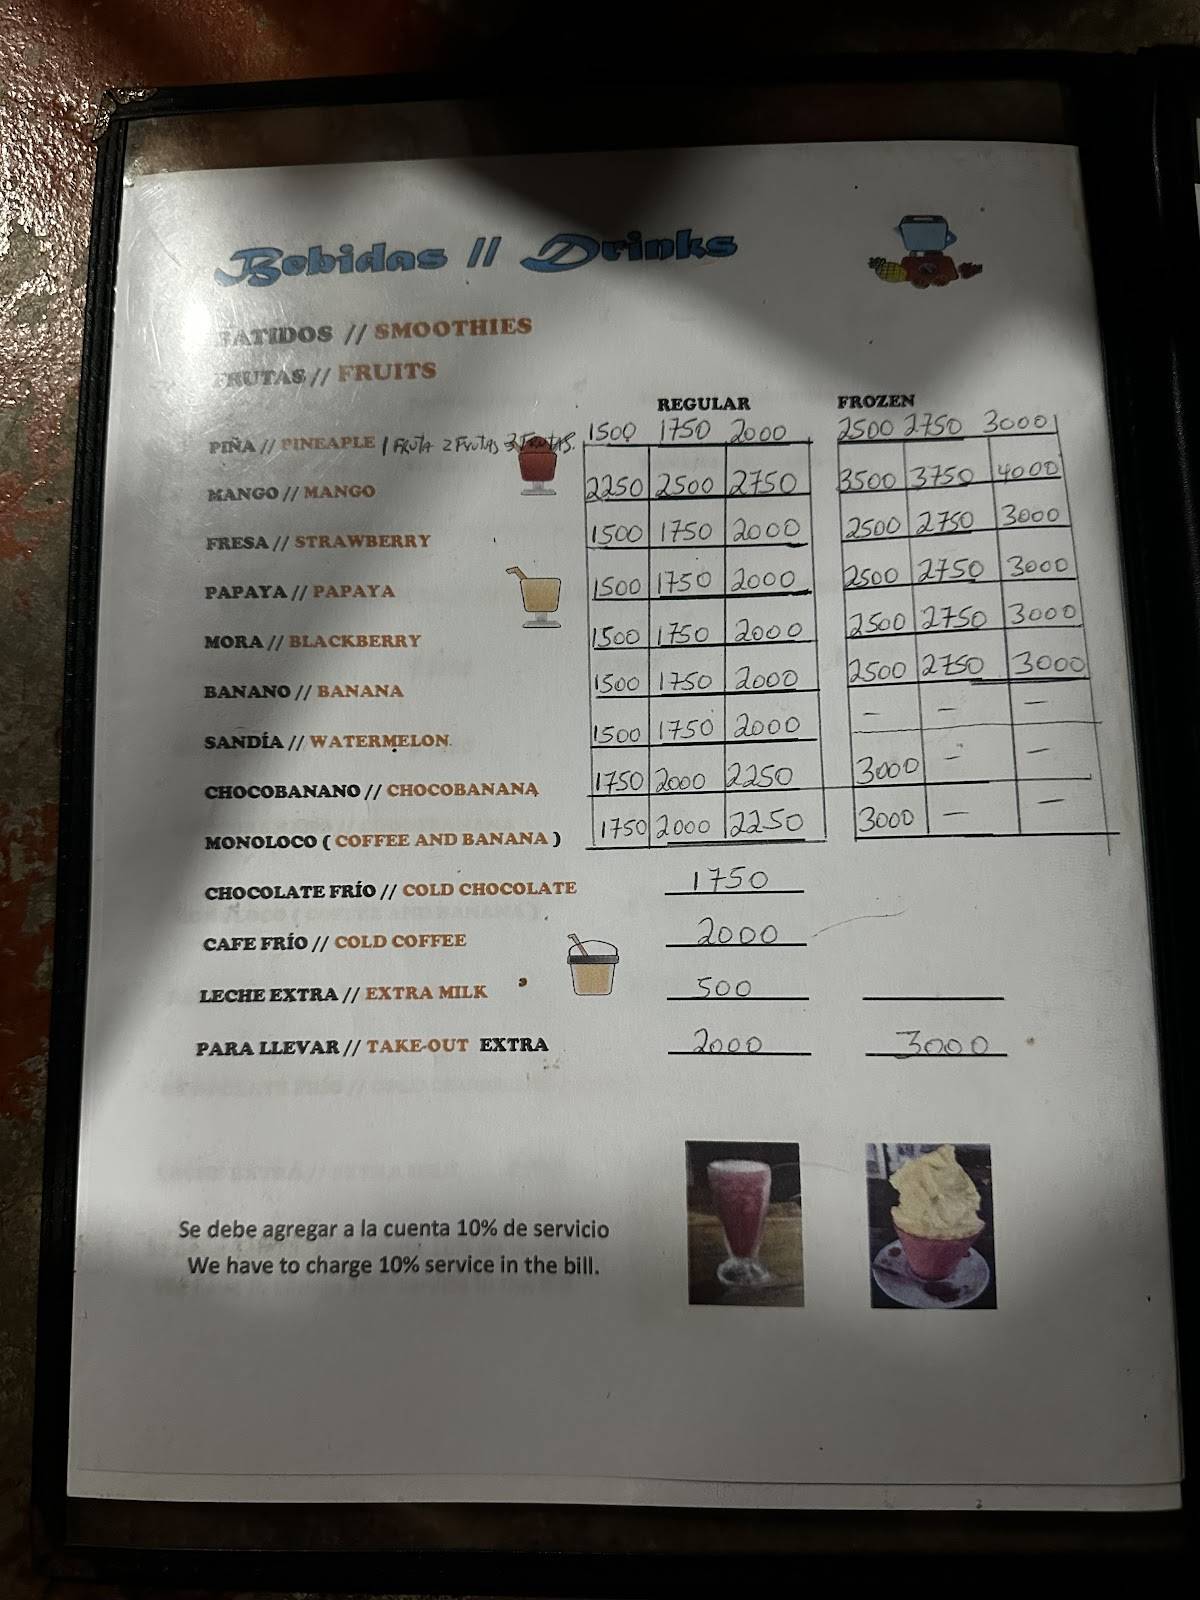 Bebidas // Drinks
BATIDOS // SMOOTHIES
FRUTAS // FRUITS
REGULAR FROZEN
PIÑA // PINEAPLE 1 Fruta 2 Frutas 3 Frutas. 1500 1750 2000 2500 2750 3000
MANGO // MANGO 2250 2500 2750 3500 3750 4000
FRESA // STRAWBERRY 1500 1750 2000 2500 2750 3000
PAPAYA // PAPAYA 1500 1750 2000 2500 2750 3000
MORA // BLACKBERRY 1500 1750 2000 2500 2750 3000
BANANO // BANANA 1500 1750 2000 2500 2750 3000
SANDÍA // WATERMELON 1500 1750 2000 — — —
CHOCOBANANO // CHOCOBANANA 1750 2000 2250 3000 — —
MONOLOCO ( COFFEE AND BANANA ) 1750 2000 2250 3000 — —
CHOCOLATE FRÍO // COLD CHOCOLATE 1750
CAFE FRÍO // COLD COFFEE 2000
LECHE EXTRA // EXTRA MILK 500
PARA LLEVAR // TAKE-OUT EXTRA 2000 3000
Se debe agregar a la cuenta 10% de servicio
We have to charge 10% service in the bill.